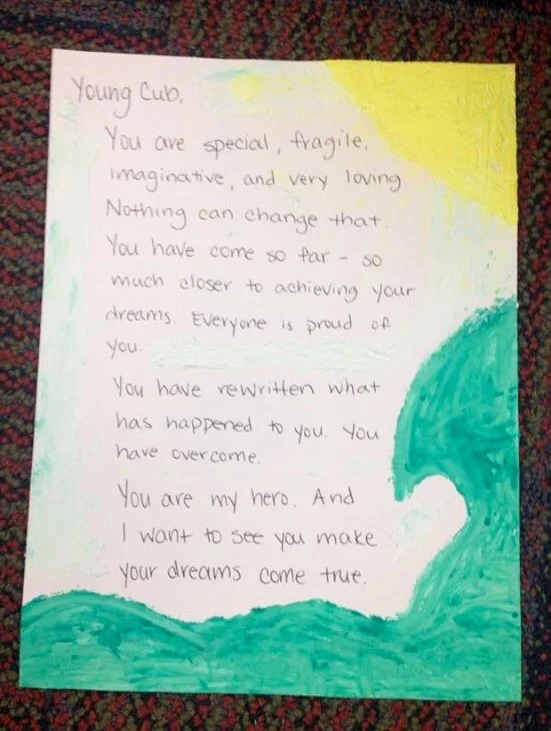 Young Cub,
You are special, fragile,
imaginative, and very loving
Nothing can change that.
You have come so far - so
much closer to achieving your
dreams. Everyone is proud of
you.
You have rewritten what
has happened to you. You
have overcome.
You are my hero. And
I want to see you make
your dreams come true.